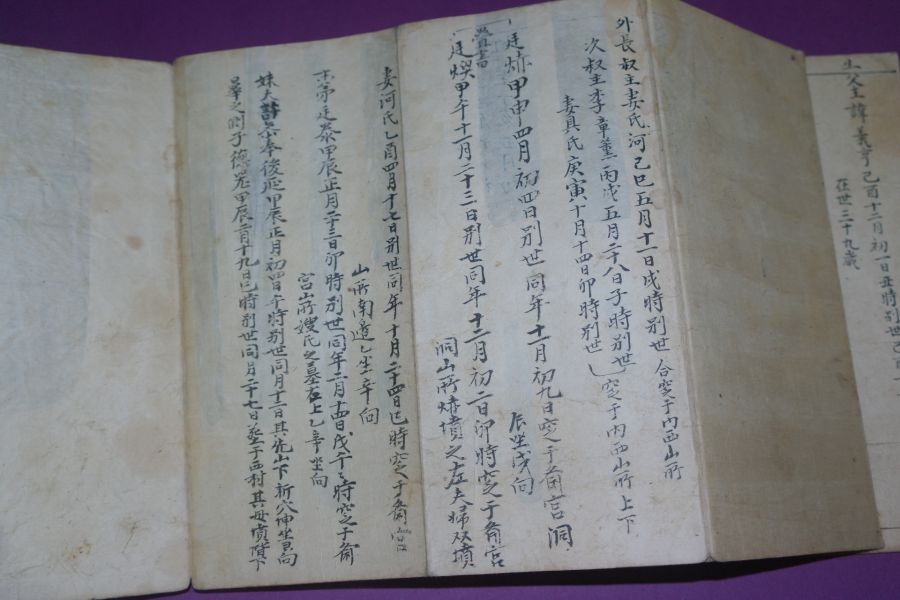 生父主諱義亨己酉十二月初一日丑時別世己
在世三十九歲
外長叔主妻氏河己巳五月十一日戌時別世合窆于內西山所
次叔主李章薰丙戌五月二十八日子時別世窆于內西山所上下
妻具氏庚寅十月十四日卯時別世
廷煥甲申四月初四日別世同年十一月初九日窆于畓宮洞
辰坐戌向
廷燮甲午十一月二十三日別世同年十二月初二日卯時窆于畓宮
洞山所墳之左夫婦双墳
妻河氏乙酉四月十七日別世同年十月二十四日巳時窆于畓宮
山所南邊乙坐辛向
末弟廷泰甲辰正月二十三日卯時別世同年二月十四日戊午時窆于畓
宮山所嫂氏之墓右上乙辛坐向
妹夫奉後甲辰正月初四日午時別世同月十一日其先山下新穴坤坐艮向
之側子德甲辰二月十九日巳時別世同月二十七日葬于西村其母墳階下